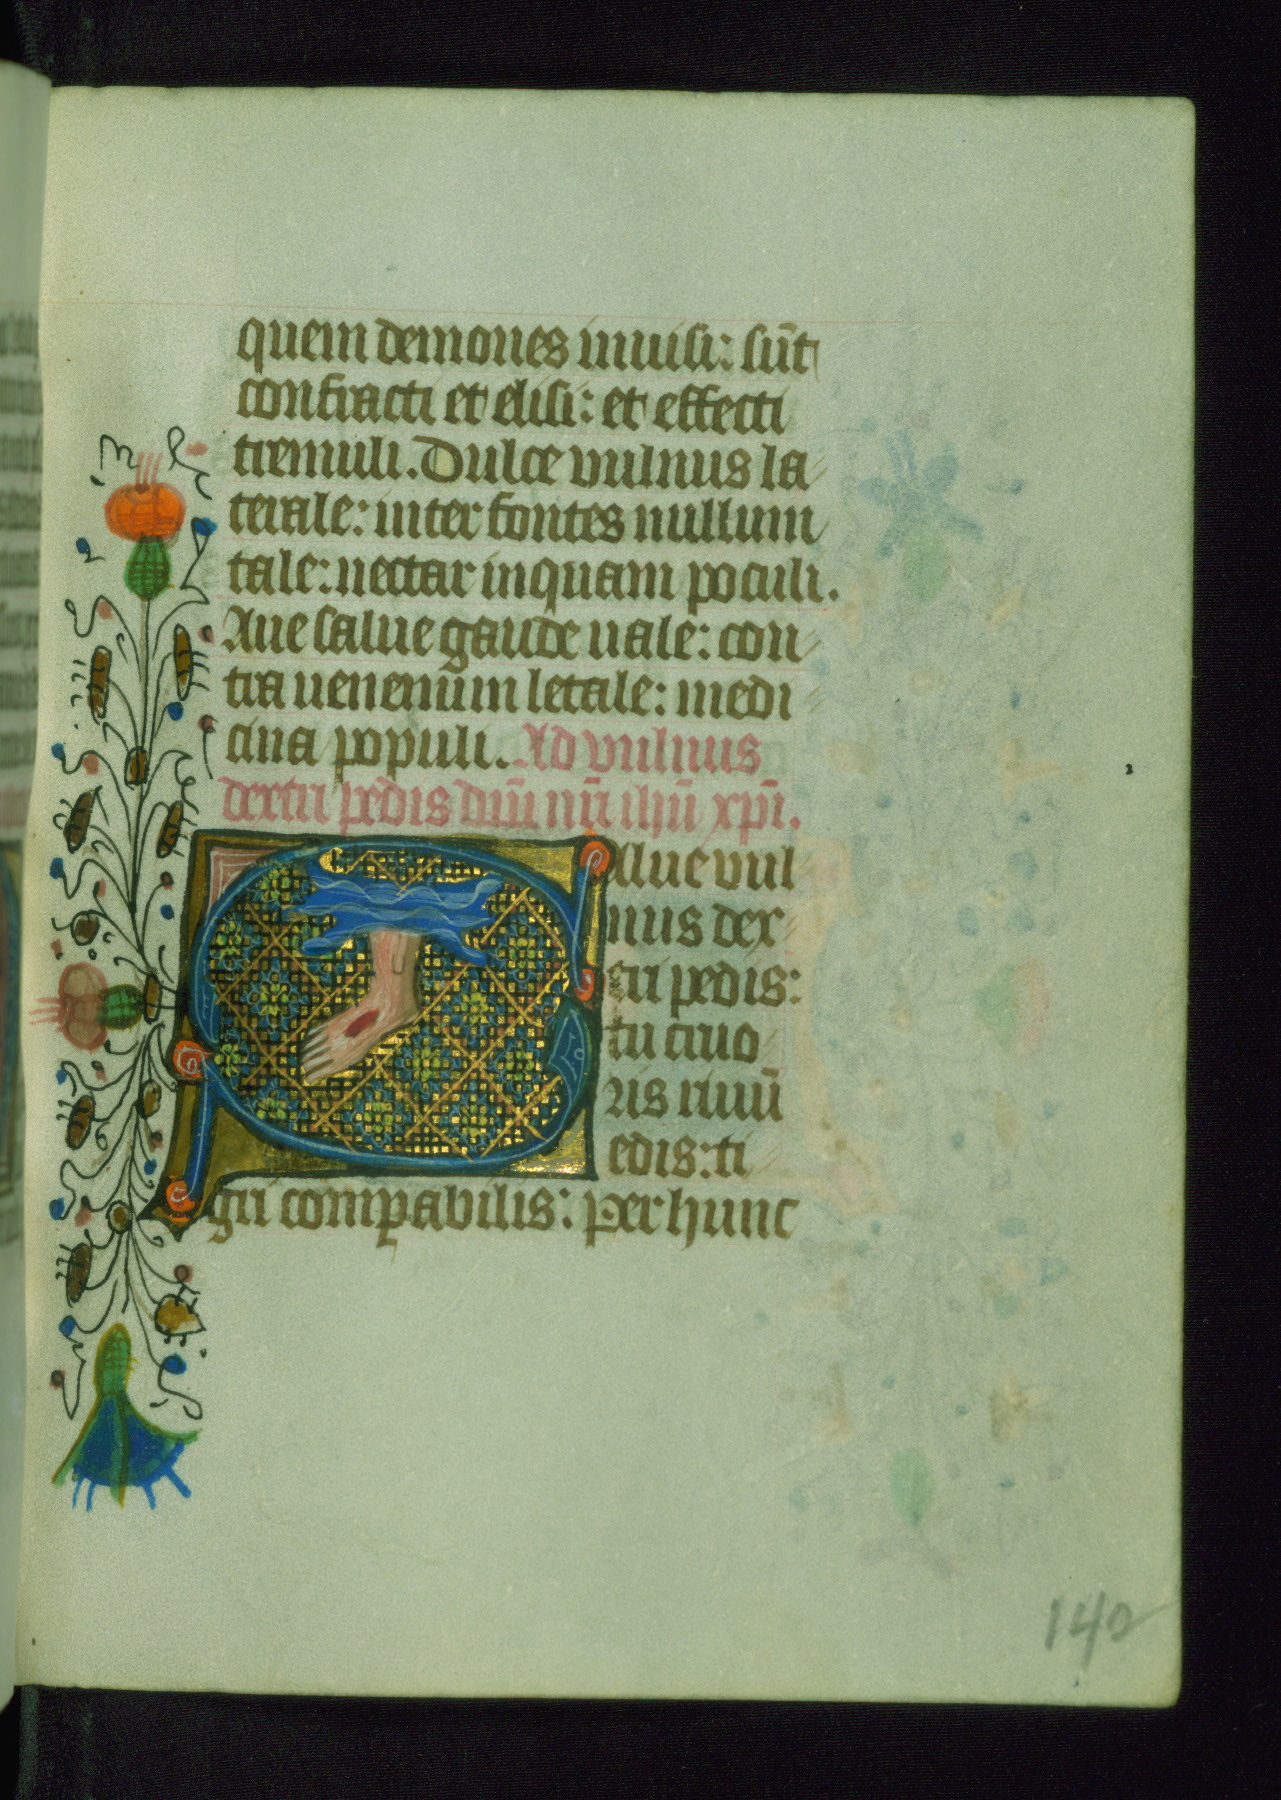 quem demones inuisi: sūt
confracti et elisi: et effecti
tremuli. Dulce vulnus la
terale: inter fontes nullum
tale: nectar inquam poculi.
Aue salue gaude uale: con
tra uenenūm letale: medi
cina populi. Ad vulnus
dextri pedis dñi nr̄i ihū xp̄i.
Aue vul
nus dex
tri pedis:
tu cruo
ris riuū
edis: ti
gri compabilis: per hunc
140